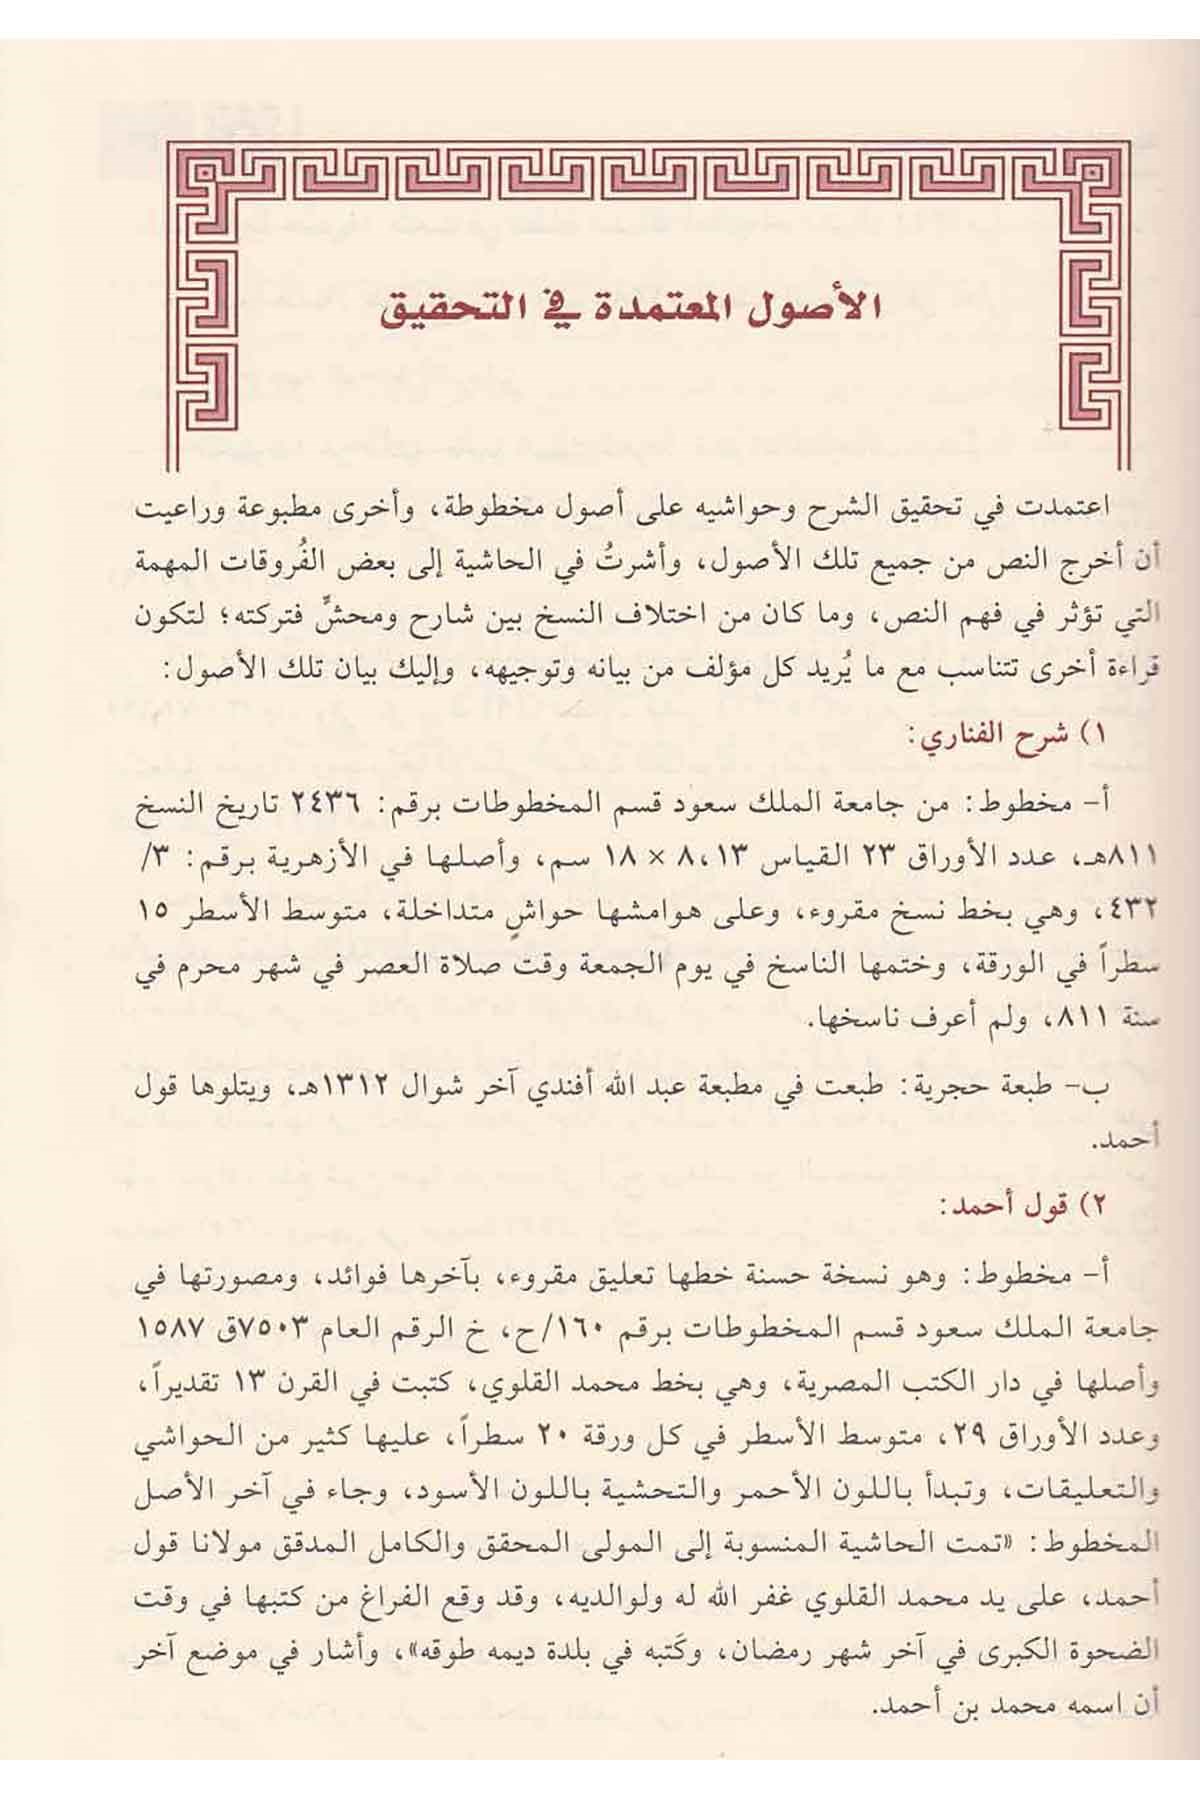 الأصول المعتمدة في التحقيق
اعتمدت في تحقيق الشرح وحواشيه على أصول مخطوطة، وأخرى مطبوعة وراعيت
أن أخرج النص من جميع تلك الأصول، وأشرتُ في الحاشية إلى بعض الفُروقات المهمة
التي تؤثر في فهم النص، وما كان من اختلاف النسخ بين شارح ومحشٍّ فتركته؛ لتكون
قراءة أخرى تتناسب مع ما يُريد كل مؤلف من بيانه وتوجيهه، وإليك بيان تلك الأصول:
١) شرح الفناري:
أ- مخطوط: من جامعة الملك سعود قسم المخطوطات برقم: ٢٤٣٦ تاريخ النسخ
٨١١هـ، عدد الأوراق ٢٣ القياس ٨،١٣ × ١٨ سم، وأصلها في الأزهرية برقم: ٣/
٤٣٢، وهي بخط نسخ مقروء، وعلى هوامشها حواشٍ متداخلة، متوسط الأسطر ١٥
سطراً في الورقة، وختمها الناسخ في يوم الجمعة وقت صلاة العصر في شهر محرم في
سنة ٨١١، ولم أعرف ناسخها.
ب- طبعة حجرية: طبعت في مطبعة عبد الله أفندي آخر شوال ١٣١٢هـ، ويتلوها قول
أحمد.
٢) قول أحمد:
أ- مخطوط: وهو نسخة حسنة خطها تعليق مقروء، بآخرها فوائد، ومصورتها في
جامعة الملك سعود قسم المخطوطات برقم ١٦٠/ح، خ الرقم العام ٧٥٠٣ق ١٥٨٧
وأصلها في دار الكتب المصرية، وهي بخط محمد القلوي، كتبت في القرن ١٣ تقديراً،
وعدد الأوراق ٢٩، متوسط الأسطر في كل ورقة ٢٠ سطراً، عليها كثير من الحواشي
والتعليقات، وتبدأ باللون الأحمر والتحشية باللون الأسود، وجاء في آخر الأصل
المخطوط: «تمت الحاشية المنسوبة إلى المولى المحقق والكامل المدقق مولانا قول
أحمد، على يد محمد القلوي غفر الله له ولوالديه، وقد وقع الفراغ من كتبها في وقت
الضحوة الكبرى في آخر شهر رمضان، وكَتبه في بلدة ديمه طوقه»، وأشار في موضع آخر
أن اسمه محمد بن أحمد.